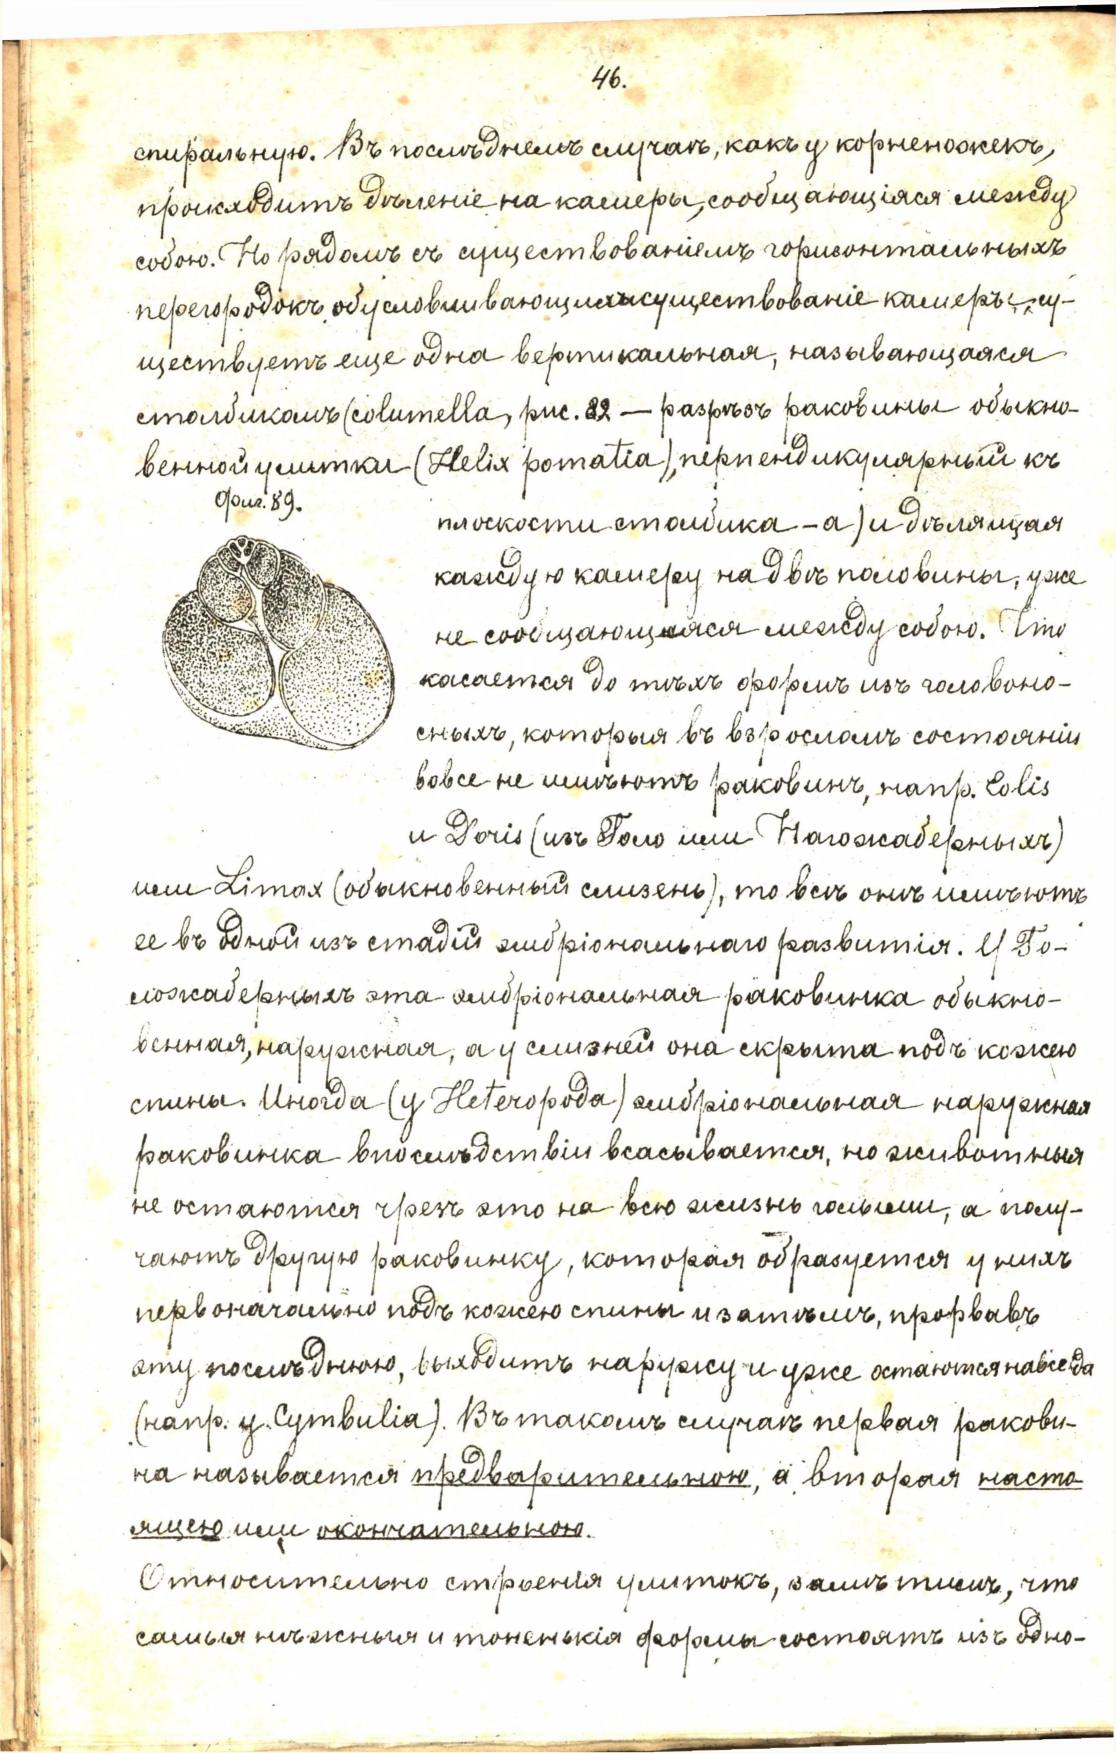 46.
спиральную. Въ послѣднемъ случаѣ, какъ у корненожекъ,
происходитъ дѣленіе на камеры, сообщающіяся между
собою. Но рядомъ съ существованіемъ горизонтальныхъ
перегородокъ, обусловливающихъ существованіе камеръ, су-
ществуетъ еще одна вертикальная, называющаяся
столбикомъ (columella, рис. 82 — разрѣзъ раковины обыкно-
венной улитки (Helix pomatia), перпендикулярный къ
Фиг. 89.
плоскости столбика – а) и дѣлящая
каждую камеру на двѣ половины, уже
не сообщающіяся между собою. Что
касается до тѣхъ формъ изъ головоно-
сныхъ, которыя въ взросломъ состояніи
вовсе не имѣютъ раковинъ, напр. Eolis
и Doris (изъ Голо или Нагожаберныхъ)
или Limax (обыкновенный слизень), то всѣ онѣ имѣютъ
ее въ одной изъ стадій эмбріональнаго развитія. У Го-
ложаберныхъ эта эмбріональная раковинка обыкно-
венная, наружная, а у слизней она скрыта подъ кожею
спины. Иногда (у Heteropoda) эмбріональная наружная
раковинка впослѣдствіи всасывается, но животныя
не остаются чрезъ это на всю жизнь голыми, а полу-
чаютъ другую раковинку, которая образуется у нихъ
первоначально подъ кожею спины и затѣмъ, прорвавъ
эту послѣднюю, выходитъ наружу и уже остаются навсегда
(напр. у Cymbulia). Въ такомъ случаѣ первая ракови-
на называется предварительною, а вторая насто
ящею или окончательною.
Относительно строенія улитокъ, замѣтимъ, что
самыя нѣжныя и тоненькія формы состоятъ изъ одно-